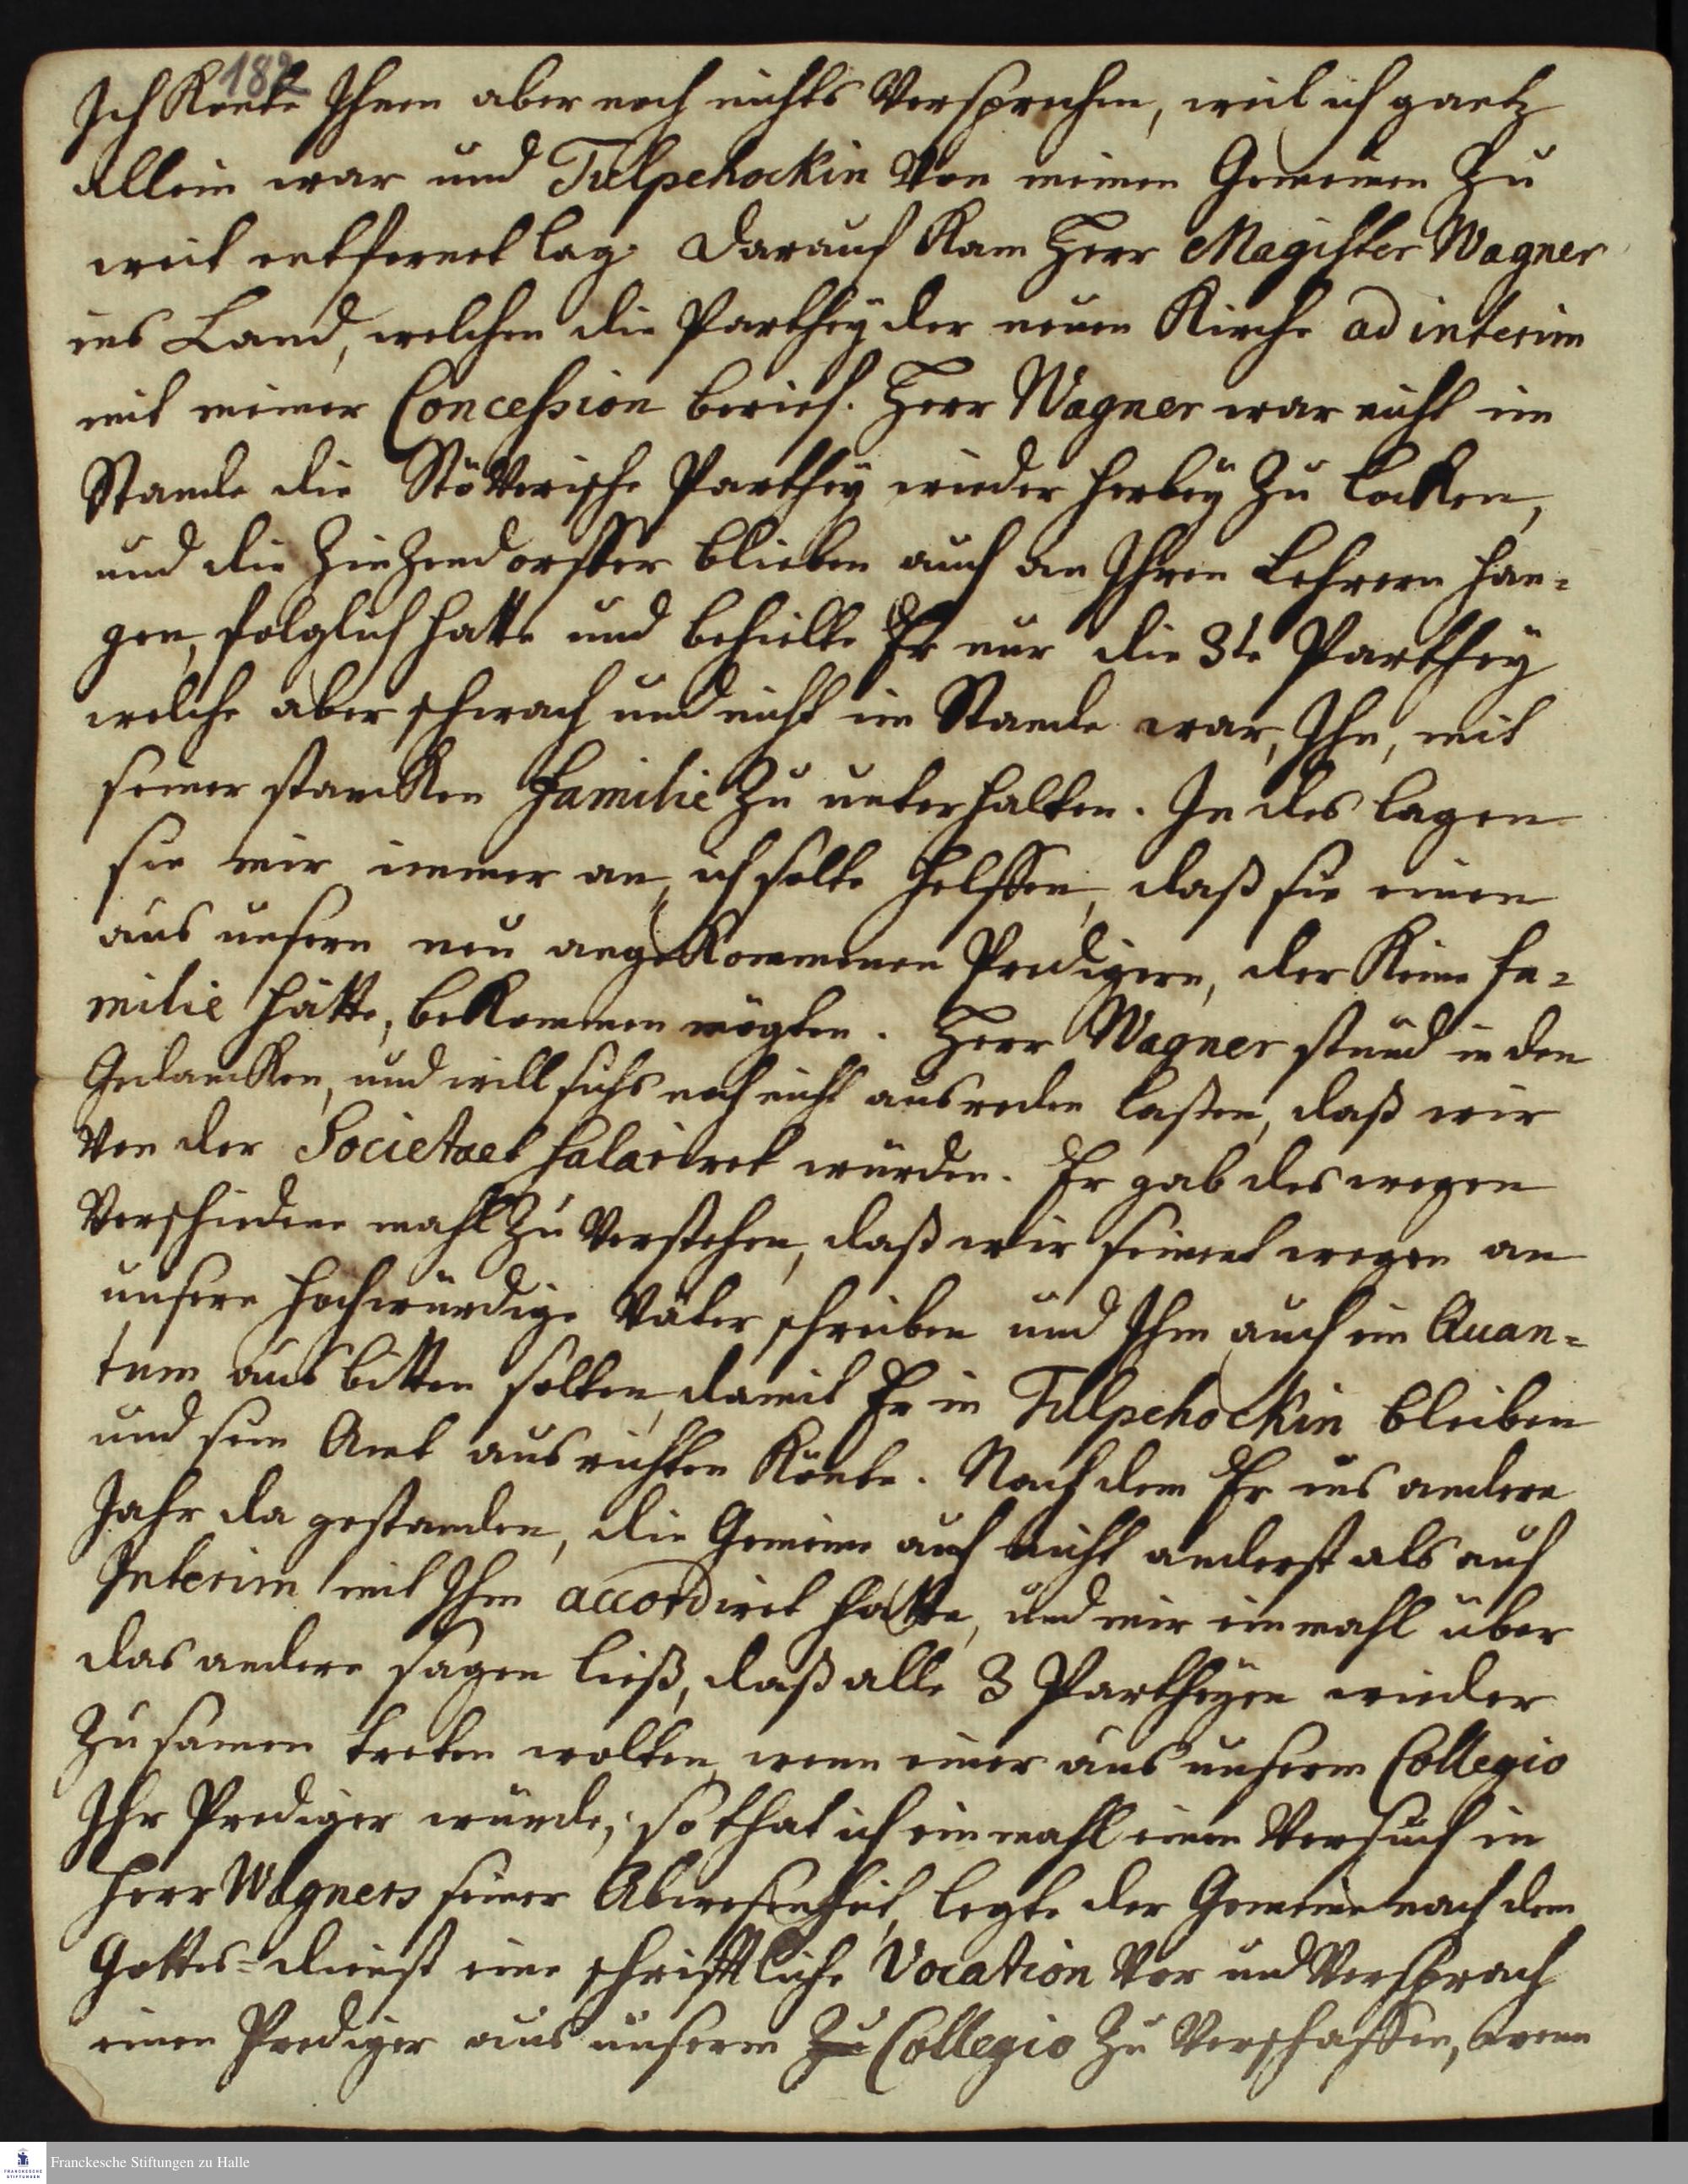 182
Ich Konte Ihnen aber noch nichts Versprechen, weil ich gantz
allein war und Tulpehockin Von meinen Gemeinen Zu
weit entfernet lag. Darauf Kam Herr Magister Wagner
ins Land, welchen die Parthey der neuen Kirche ad interim
mit meiner Concession berief. Herr Wagner war nicht im
Stande die Stöverische Parthey wieder herbey Zu locken,
und die Zinzendorffer blieben auch an Ihren Lehrern han-
gen, folglich hatte und behielte Er nur die 3te Parthey
welche aber schwach und nicht im Stande war, Ihn, mit
seiner starcken Familie Zu unterhalten. In des lagen
sie mir immer an, ich solte helffen, daß sie einen
aus unsern neu angekommenen Predigern, der Keine Fa-
milie hätte, bekommen mögten. Herr Wagner stund in den
Gedancken, und will sichs noch nicht ausreden laßen, daß wir
Von der Societaet salairet würden. Er gab des wegen
Verschiedene mahl Zu Verstehen, daß wir seinet wegen an
unsere Hochwürdige Väter schreiben und Ihm auch ein Quan-
tum aus bitten solten, damit Er in Tulpehockin bleiben
und sein Amt ausrichten Könte. Nach dem Er ins andere
Jahr da gestanden, die Gemeine auch nicht anderst als auf
Interim mit Ihm accordiret hatte, und mir einmahl über
das andere sagen ließ, daß alle 3 Partheyen wieder
Zusamen treten wolten, wenn einer aus unserm Collegio
Ihr Prediger würde; so that ich einmahl einen Versuch in
Herr Wagners seiner Abwesenheit, legte der Gemeine nach dem
Gottes-dienst eine schrifftliche Vocation Vor und Versprach
einen Prediger aus unserm Zu Collegio Zu Verschaffen, wenn
Franckesche Stiftungen zu Halle
FRANCKESCHE STIFTUNGEN